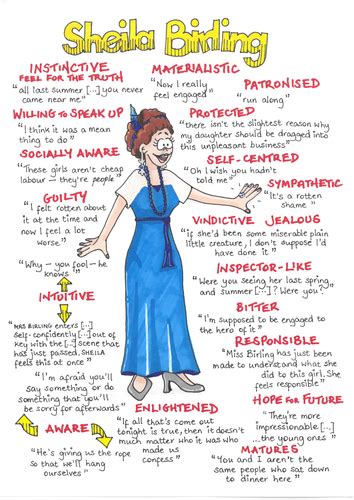 Sheila Birling
INSTINCTIVE
FEEL FOR THE TRUTH
"all last summer [...] you never
came near me"
WILLING TO SPEAK UP
"I think it was a mean
thing to do"
SOCIALLY AWARE
"These girls aren't cheap
labour – they're people"
GUILTY
"I felt rotten about
it at the time and
now I feel a lot
worse"
"Why – you fool – he
knows"
INTUITIVE
"MRS BIRLING enters [...]
self-confidently [...] out of
key with the [...] scene that
has just passed. SHEILA
feels this at once"
"I'm afraid you'll
say something or do
something that you'll
be sorry for afterwards"
AWARE
"He's giving us the rope
so that we'll hang
ourselves"
MATERIALISTIC
"Now I really
feel engaged"
PATRONISED
"run along"
PROTECTED
"there isn't the slightest reason why
my daughter should be dragged into
this unpleasant business"
SELF-CENTRED
"Oh I wish you hadn't
told me"
SYMPATHETIC
"It's a rotten
shame"
VINDICTIVE JEALOUS
"if she'd been some miserable plain
little creature, I don't suppose I'd
have done it"
INSPECTOR-LIKE
"Were you seeing her last spring
and summer [...]? Were you?"
BITTER
"I'm supposed to be engaged
to the hero of it"
RESPONSIBLE
"Miss Birling has just been
made to understand what she
did to this girl. She
feels responsible"
HOPE FOR FUTURE
"They're more
impressionable [...]
...the young ones"
ENLIGHTENED
"If all that's come out
tonight is true, then it doesn't
much matter who it was who
made us
confess"
MATURES
"You and I aren't the
same people who sat down
to dinner here"